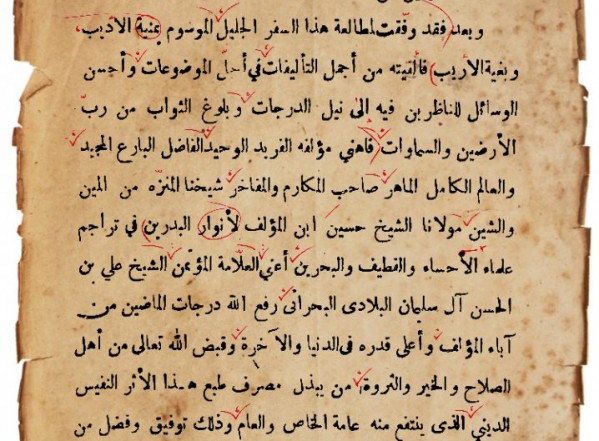 وبعد فقد وفقت لمطالعة هذا السفر الجليل الموسوم بمنية الأديب
وبغية الأريب فألفيته من أجمل التأليفات في أجلّ الموضوعات وأحسن
الوسائل للناظرين فيه الى نيل الدرجات وبلوغ الثواب من ربّ
الأرضين والسماوات فاهني مؤلفه الفريد الوحيد الفاضل البارع المجيد
والعالم الكامل الماهر صاحب المكارم والمفاخر شيخنا المنزّه من المين
والشين مولانا الشيخ حسين ابن المؤلف لأنوار البدرين في تراجم
علماء الأحساء والقطيف والبحرين أعني العلّامة المؤتمن الشيخ علي بن
الحسن آل سليمان البلادى البحرانى رفع الله درجات الماضين من
آباء المؤلف وأعلى قدره فى الدنيا والآخرة وقبض الله تعالى من أهل
الصلاح والخير والثروة من يبذل مصرف طبع هذا الأثر النفيس
الدينى الذى ينتفع منه عامة الخاص والعام وذلك توفيق وفضل من